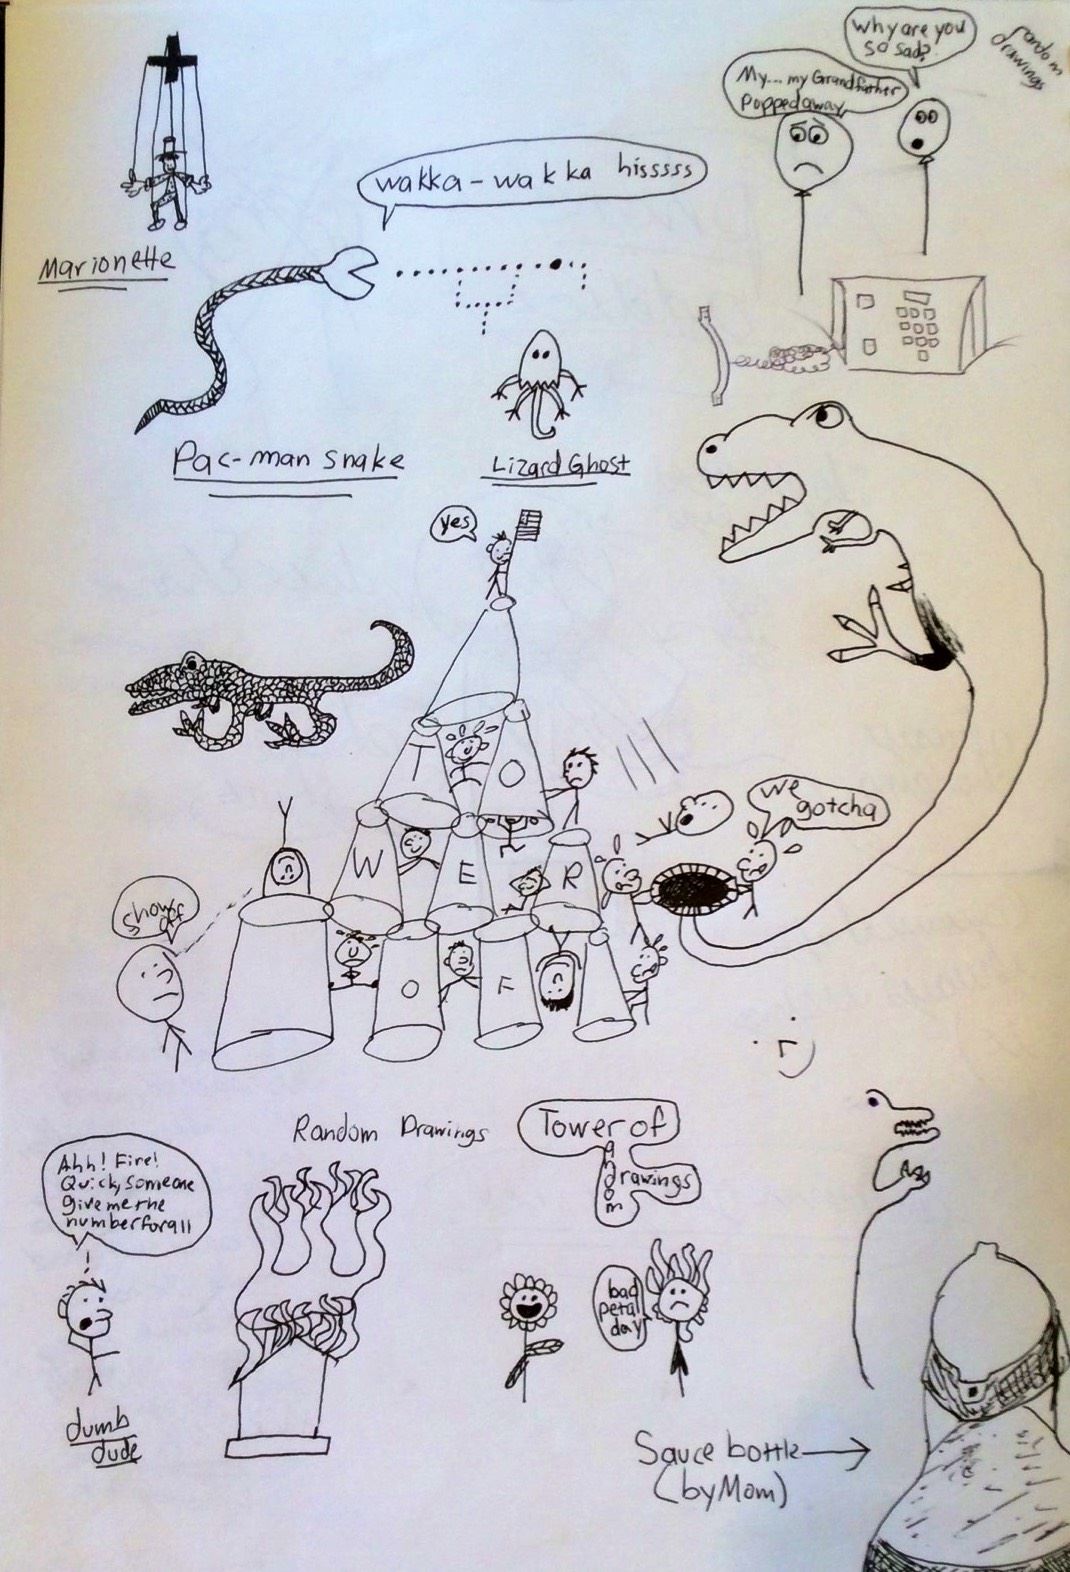 why are you
so sad?
random
drawings
My... my Grandfather
popped away
wakka-wakka hisssss
Marionette
Pac-man snake
Lizard Ghost
yes
T O
we
gotcha
W E R
show
off
O F
Random Drawings
Tower of
random
drawings
Ahh! Fire!
Quick, Someone
give me the
number for 911
bad
petal
day
dumb
dude
Sauce bottle
(by Mom)